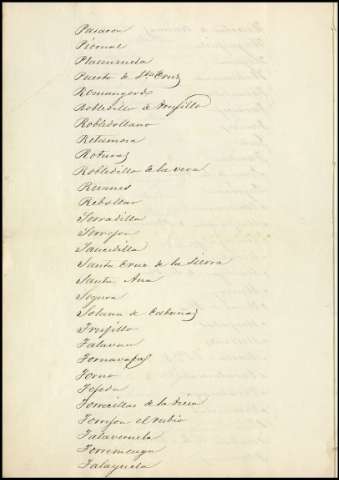 Pasaron
Piornal
Plasenzuela
Puerto de Sta Cruz
Romangordo
Robledillo de Trujillo
Robledollano
Retamosa
Roturas
Robledillo de la vera
Ruanes
Rebollar
Serradilla
Serrejon
Saucedilla
Santa Cruz de la Sierra
Santa Ana
Segura
Solana de Cabañas
Trujillo
Talavan
Tornavacas
Torno
Tejeda
Torrecillas de la Tiesa
Torrejon el rubio
Talaveruela
Torremenga
Talayuela